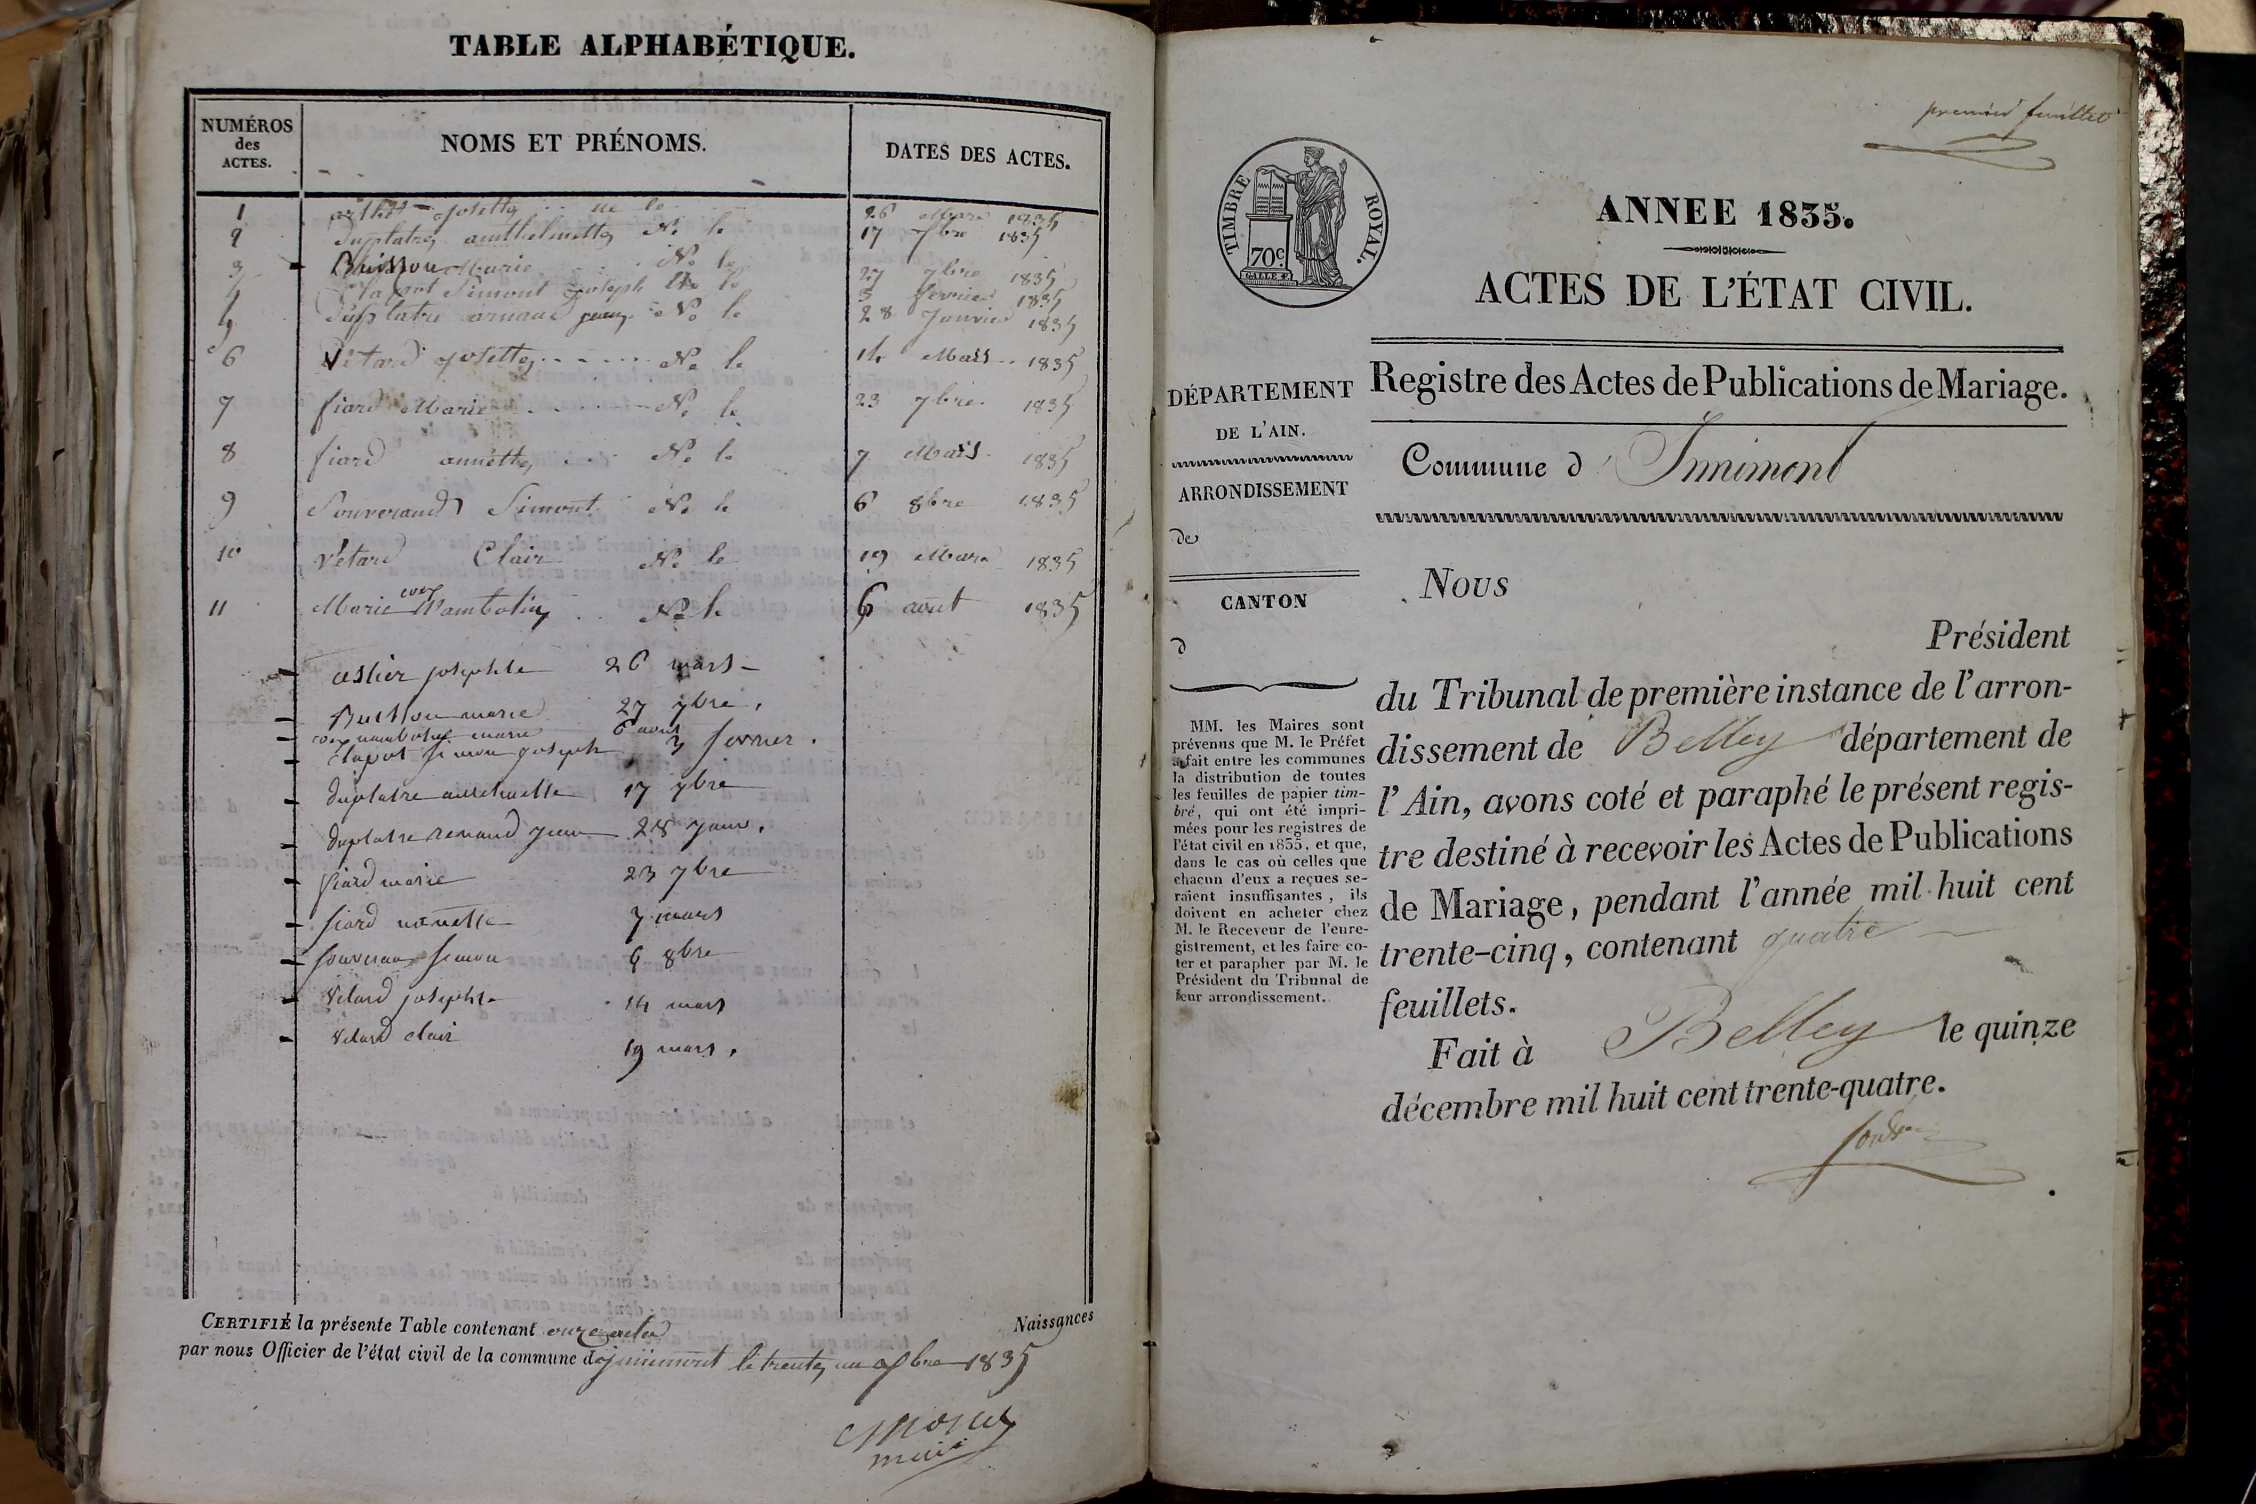 TABLE ALPHABÉTIQUE.
NUMÉROS des ACTES.
NOMS ET PRÉNOMS.
DATES DES ACTES.
1 Josette 26 Mars 1835
2 Duplatre anthelmette Né le 17 7bre 1835
3 Buisson Marie Né le 27 7bre 1835
Simont joseph Né le 3 fevrier 1835
Duplatre jean Né le 28 Janvier 1835
6 Vétard Josette Né le 14 Mars 1835
7 fiard Marie Né le 23 7bre 1835
8 fiard annette Né le 7 Mars 1835
9 Souverand Simont Né le 6 8bre 1835
10 Vétard Clair Né le 19 Mars 1835
11 Marie Wambotin Né le 6 aout 1835
josephte 26 mars
Buisson marie 27 7bre
marie 6 aout
Clapot Simon joseph 3 fevrier
Duplatre 17 7bre
duplatre Renaud jean 28 janv.
fiard marie 23 7bre
fiard 7 mars
Souverain Simon 6 8bre
Vétard josephte 14 mars
Vétard clair 19 mars
CERTIFIÉ la présente Table contenant onze actes Naissances
par nous Officier de l'état civil de la commune d'jnnimont le trente un Xbre 1835
maire
premier feuillet
TIMBRE ROYAL.
70c.
GALLE F.
ANNEE 1835.
ACTES DE L'ÉTAT CIVIL.
Registre des Actes de Publications de Mariage.
Commune d'Innimont
DÉPARTEMENT
DE L'AIN.
ARRONDISSEMENT
de
CANTON
d
MM. les Maires sont
prévenus que M. le Préfet
a fait entre les communes
la distribution de toutes
les feuilles de papier tim-
bré, qui ont été impri-
mées pour les registres de
l'état civil en 1835, et que,
dans le cas où celles que
chacun d'eux a reçues se-
raient insuffisantes, ils
doivent en acheter chez
M. le Receveur de l'enre-
gistrement, et les faire co-
ter et parapher par M. le
Président du Tribunal de
leur arrondissement.
Nous
Président
du Tribunal de première instance de l'arron-
dissement de Belley département de
l'Ain, avons coté et paraphé le présent regis-
tre destiné à recevoir les Actes de Publications
de Mariage, pendant l'année mil huit cent
trente-cinq, contenant quatre
feuillets.
Fait à Belley le quinze
décembre mil huit cent trente-quatre.